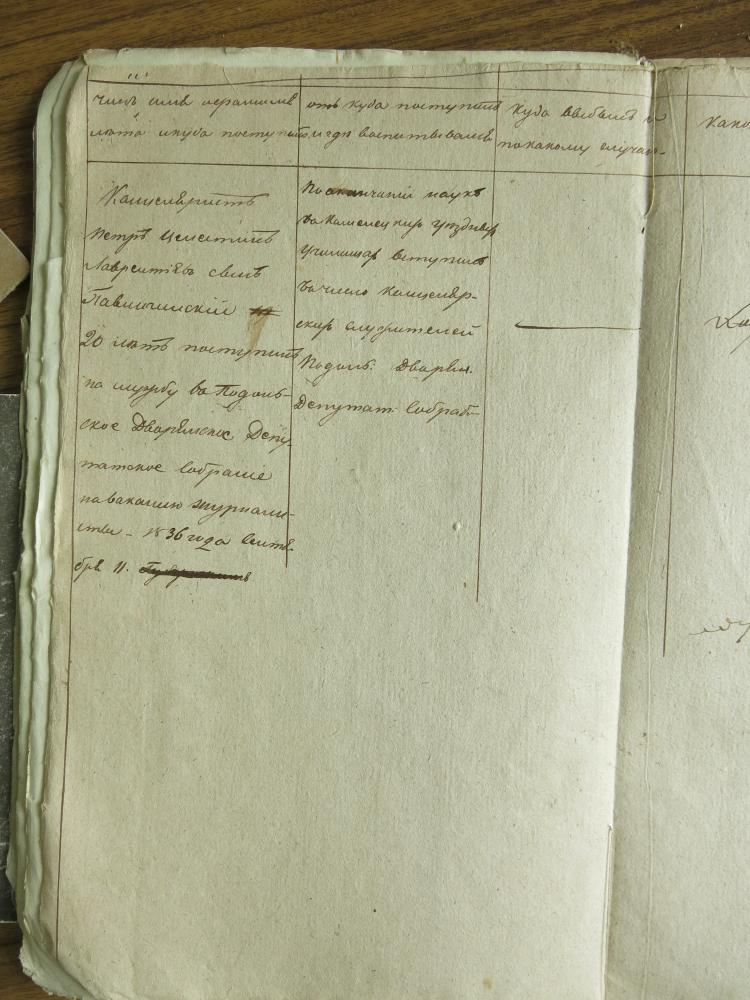 чинъ имя и фамилия
лета и куда поступилъ
отъ куда поступилъ
и где воспитывался
куда выбылъ и
по какому случаю
Како
Канцеляристъ
Петръ Целестинъ
Лаврентіевъ сынъ
Павлишинскій
20 летъ поступилъ
на службу въ Подоль-
ское Дворянское Депу-
татское Собраніе
на ваканцію журнали-
ста - 1836 года Сентя-
бря 11.
По окончаніи наукъ
въ Каменецкомъ Уездномъ
Училище вступилъ
въ число Канцеляр-
скихъ служителей
Подоль: Дворян.
Депутат: Собранія